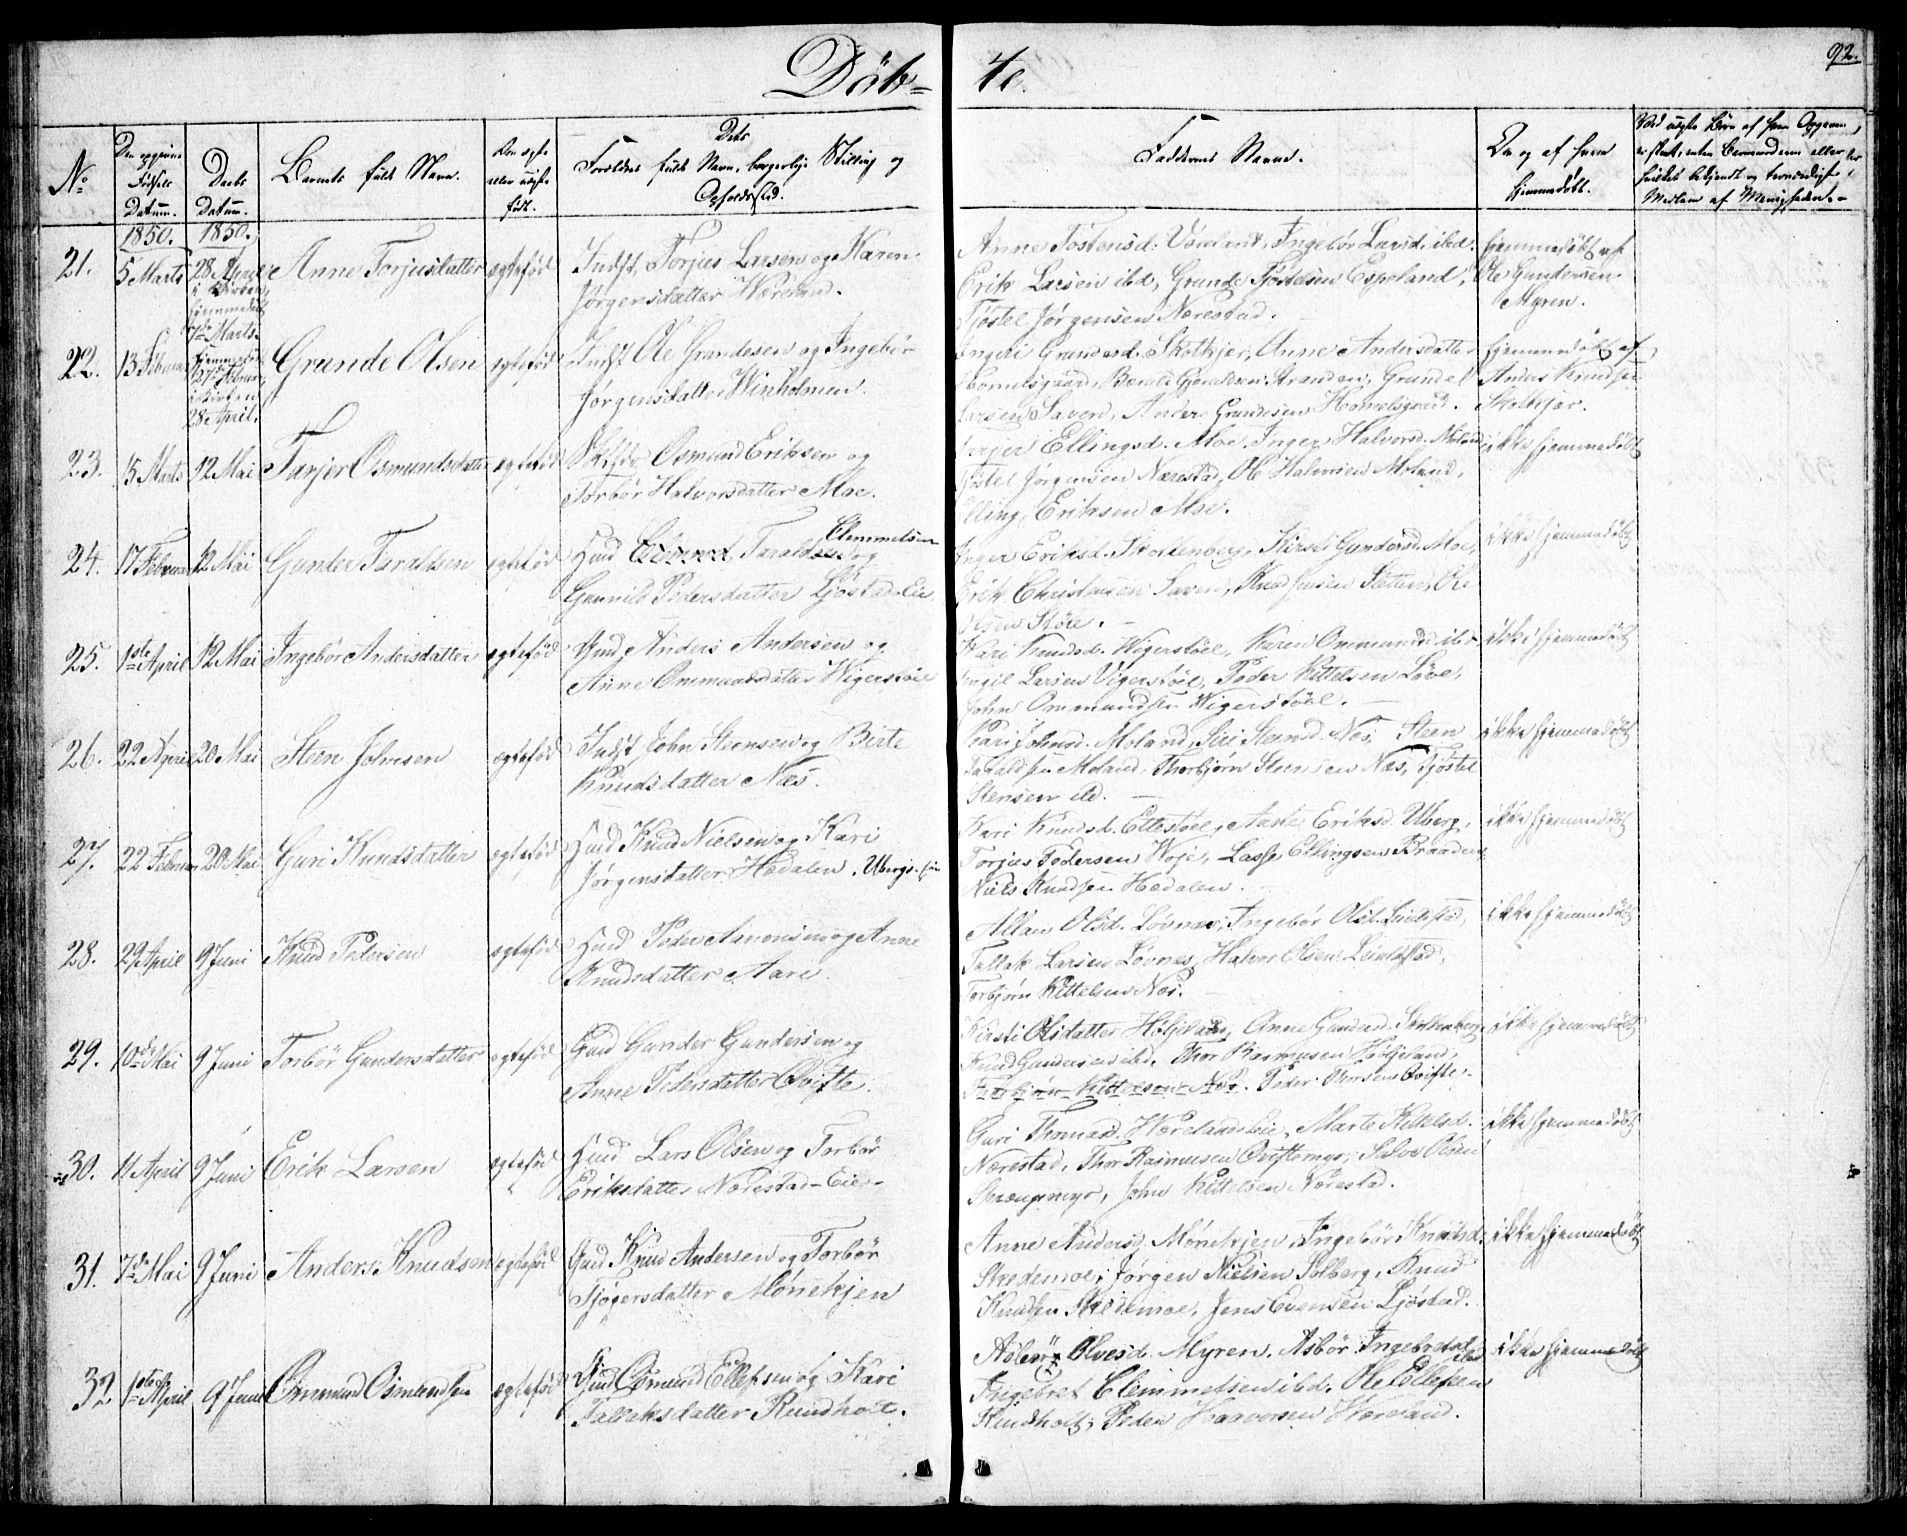 Döb= te.
92.
No
Den opgivne Fødsels Datum.
Daabs Datum.
Barnets fulde Navn.
Om ægte eller uægte født.
Dets Forældres fulde Navn, borgerlige Stilling og Opholdsted.
Faddernes Navne.
Om og af hvem hjemmedöbt.
1850. 1850.
21. 5 Marts 28 April i Kirken, hjemmedöbt 7de Marts. Anne Torjusdatter ægtefød Indst. Torjus Larsen og Karen
Jørgensdatter Wæreland.
Anne Tostensd. Ingebor Larsd. ibd.
Erik Larsen ibd, Grunde Espeland,
Tjöstel Jørgensen Nærestad.
hjemmedöbt af
Ole Gundersen
Myren.
22. 13 Februar hjemmedöbt 27 Februar i Kirken 28 April. Grunde Olsen ægtefød Indst Ole Grundesen og Ingebör
Jørgensdatter Winholmen.
Ingeri Grundesd. Skolkjær, Anne Andersdatter
Gjeraldsen Stranden, Grundel
Larsen Saven, Anders Grundesen Homelsgaard.
hjemmedöbt af
Anders Knudsen
Skolkjær.
23. 15 Marts 12 Mai Tarjer Osmundsdatter ægtefød Osmund Eriksen og
Torbör Halvorsdatter Moe.
Ellingsd. Moe, Inger Halvorsd. Moland
Tjöstel Jörgensen Nærestad, Ole Halvorsen Moland,
Elling Eriksen Moe.
ikke hjemmedöbt
24. 17 Februar 12 Mai Gunder Taraldsen ægtefød Huusd Tarald Clemmetsen og
Gunnild Pedersdatter Ljöstad-Eie
Inger Eriksd. Skollenberg, Kirsti Gundersd. Moe,
Erik Christensen Saven, Knud Jensen Sætten, Ole
Olsen Støle.
ikke hjemmedöbt
25. 1ste April 12 Mai Ingebör Andersdatter ægtefød Gaud Anders Andersen og
Anne Ommundsdatter Wigerstöel
Kari Knudsd. Wigerstöel, Karen Ommundsd. ibd,
Engil Larsen Vigerstöel, Peder Kittelsen Löve,
John Ommundsen Wigerstöel.
ikke hjemmedöbt
26. 22 April 20 Mai Steen Johnsen ægtefød Indst John Steensen og Birte
Knudsdatter Næs.
Kari Johnsd. Moland, Siri Steensd. Næs, Steen
Taraldsen Moland, Thorbjørn Steensen Næs, Tjöstel
Stensen ibd.
ikke hjemmedöbt
27. 22 Februar 20 Mai Guri Knudsdatter ægtefød Huusd Knud Nielsen og Kari
Jørgensdatter Hædalen, Ubergs-Eie
Kari Knudsd. Ettestöel, Anne Eriksd. Uberg,
Torjus Pedersen Woje, Lasse Ellingsen Braaden,
Niels Knudsen Hædalen.
ikke hjemmedöbt
28. 29 April 9 Juni Knud Pedersen ægtefød Huusd Peder Aanonsen og Anne
Knudsdatter Aare.
Olsd. Lövnæs, Ingebör Olsd. Lindstad,
Tallak Larsen Lövnes, Halvor Olsen Lindstad,
Torbjörn Kittelsen Næs.
ikke hjemmedöbt
29. 10de Mai 9 Juni Torbör Gundersdatter ægtefød Gaud Gunder Gundersen og
Anne Pedersdatter Qvifte.
Kirsti Olsdatter Høljeland, Anne Gundersd. Skollenberg,
Knud Gundersen ibd, Thor Rasmusen Høljeland,
Torbjörn Kittelsen Næs. Peder Thorsen Qvifte.
ikke hjemmedöbt
30. 11 April 9 Juni Erik Larsen ægtefød Huusd Lars Olsen og Torbör
Eriksdatter Nærestad-Eie
Guri Thomasd. Wærelands Eie, Marte Kittelsd.
Nærestad, Thor Rasmusen Qviftemyr, Salve Olsen
John Kittelsen Nærestad.
ikke hjemmedöbt
31. 7de Mai 9 Juni Anders Knudsen ægtefød Gaud Knud Andersen og Torbör
Tjögersdatter Mönekjen
Anne Andersd. Mönekjen, Ingebör Knudsd.
Skedemoe, Jörgen Nielsen Solberg, Knud
Knudsen Skedemoe, Jens Evensen Ljöstad.
ikke hjemmedöbt
32. 1ste April 9 Juni Osmund Osmundsen ægtefød Gaud Osmund Ellefsen og Kari
Tallaksdatter Rundholt.
Olvesd. Myren, Asbör Ingebretsd. ibd
Ingebret Clemmetsen ibd, Ole Ellefsen
Rundholt, Peder Haavorsen Wæreland.
ikke hjemmedöbt